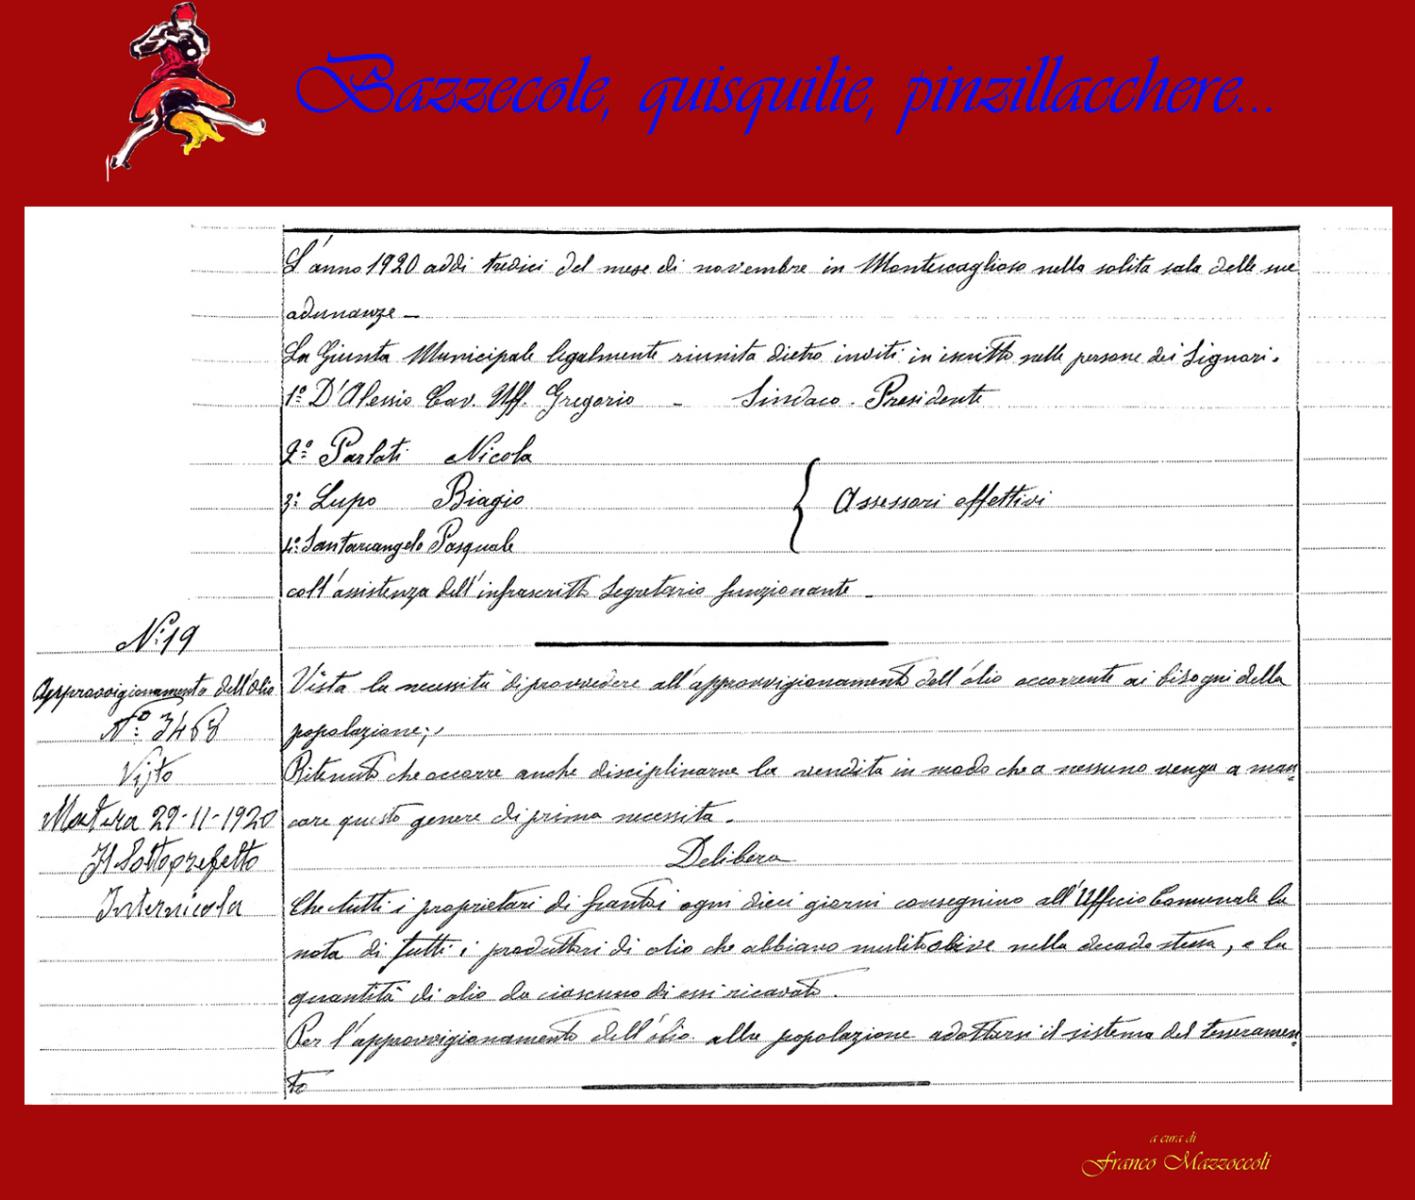 Bazzecole, quisquilie, pinzillacchere...
L'anno 1920 addì tredici del mese di novembre in Montescaglioso nella solita sala delle sue
adunanze _
La Giunta Municipale legalmente riunita dietro inviti in iscritto nelle persone dei Signori.
1° D'Alessio Cav. Uff. Gregorio - Sindaco - Presidente
2° Parlati Nicola
3° Lupo Biagio
Assessori effettivi
4° Santarcangelo Pasquale
coll'assistenza dell'infrascritto Segretario funzionante _
N.° 19
Approvvigionamento dell'olio
N.° 3468
Visto
Matera 29-11-1920
Il Sottoprefetto
Internicola
Vista la necessità di provvedere all'approvvigionamento dell'olio occorrente ai bisogni della
popolazione;
Ritenuto che occorre anche disciplinarne la vendita in modo che a nessuno venga a man
care questo genere di prima necessita.
Delibera
Che tutti i proprietari di frantoi ogni dieci giorni consegnino all'Ufficio Comunale la
nota di tutti i produttori di olio che abbiano molito olive nella decade stessa, e la
quantità di olio da ciascuno di essi ricavato.
Per l'approvvigionamento dell'olio alla popolazione adottarsi il sistema del tesseramen
to
a cura di
Franco Mazzoccoli